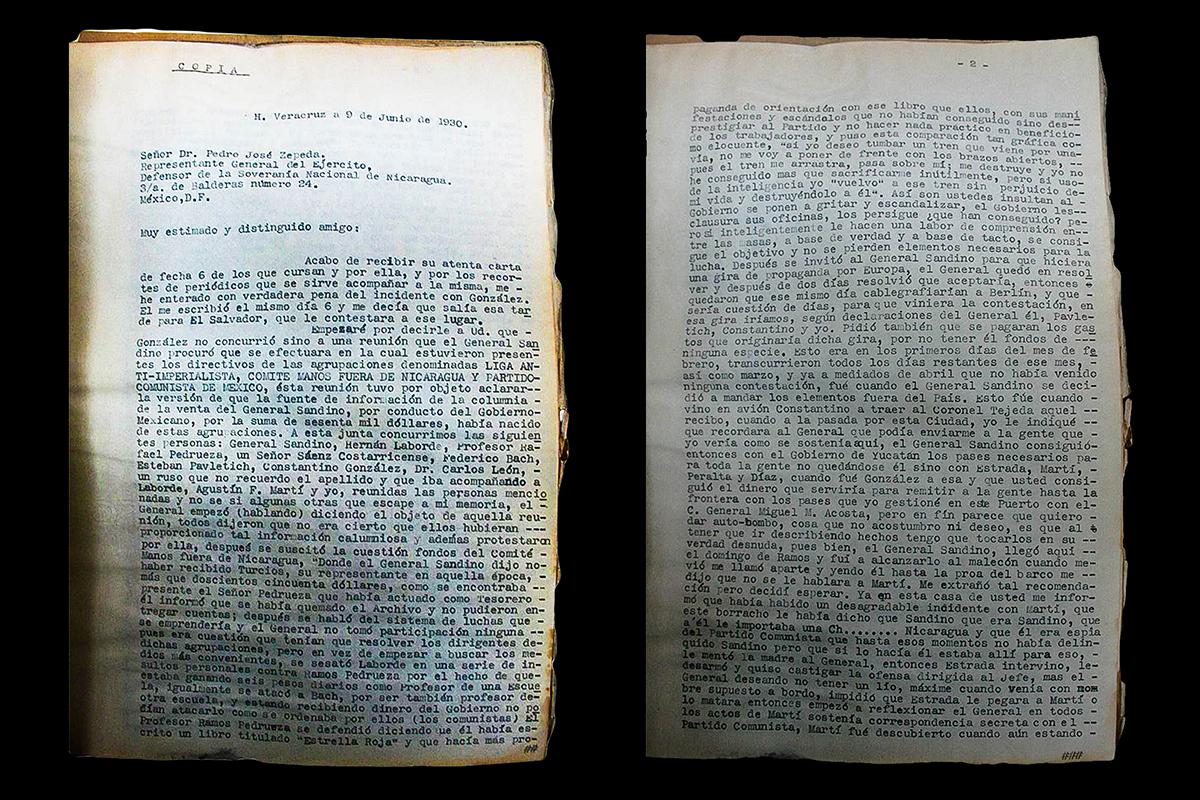 COPIA
H. Veracruz a 9 de Junio de 1930.
Señor Dr. Pedro José Zepeda.
Representante General del Ejercito,
Defensor de la Soveranía Nacional de Nicaragua.
3/a. de Balderas número 24.
México,D.F.
Muy estimado y distinguido amigo:
Acabo de recibir su atenta carta
de fecha 6 de los que cursan y por ella, y por los recor-
tes de periódicos que se sirve acompañar a la misma, me -
he enterado con verdadera pena del incidente con González.
El me escribió el mismo día 6 y me decía que salía esa tar
de para El Salvador, que le contestara a ese lugar.
Empezaré por decirle a Ud. que -
González no concurrió sino a una reunión que el General San
dino procuró que se efectuara en la cual estuvieron presen-
tes los directivos de las agrupaciones denominadas LIGA AN-
TI-IMPERIALISTA, COMITE MANOS FUERA DE NICARAGUA Y PARTIDO-
COMUNISTA DE MEXICO, ésta reunión tuvo por objeto aclarar--
la versión de que la fuente de información de la columnia -
de la venta del General Sandino, por conducto del Gobierno-
Mexicano, por la suma de sesenta mil dóllares, había nacido
de estas agrupaciones. A esta junta concurrimos las siguien
tes personas: General Sandino, Hernán Laborde, Profesor Ra-
fael Pedrueza, un Señor Sáenz Costarricense, Federico Bach,
Esteban Pavletich, Constantino González, Dr. Carlos León, -
un ruso que no recuerdo el apellido y que iba acompañando a
Laborde, Agustín F. Martí y yo, reunidas las personas mencio
nadas y no se si algunas otras que escape a mi memoria, el -
General empezó (hablando) diciendo el objeto de aquella reu-
nión, todos dijeron que no era cierto que ellos hubieran ---
proporcionado tal información calumniosa y además protestaron
por ella, despues se suscitó la cuestión fondos del Comité -
Manos fuera de Nicaragua, "Donde el General Sandino dijo no-
haber recibido Turcios, su representante en aquella época, -
más que doscientos cincuenta dóllares, como se encontraba --
presente el Señor Pedrueza que había actuado como Tesorero -
él informó que se había quemado el Archivo y no pudieron en-
tregar cuentas; después se habló del sistema de luchas que -
se emprendería y el General no tomó participación ninguna --
pues era cuestión que tenían que resolver los dirigentes de-
dichas agrupaciones, pero en vez de empezar a buscar los me-
dios más convenientes, se sesató Laborde en una serie de in-
sultos personales contra Ramos Pedrueza por el hecho de que-
estaba ganando seis pesos diarios como Profesor de una Escue
la, igualmente se atacó a Bach, por ser también profesor de-
otra escuela, y estando recibiendo dinero del Gobierno no po
dían atacarlo como se ordenaba por ellos (los comunistas) El
Profesor Ramos Pedrueza se defendió diciendo que él había es-
crito un libro titulado "Estrella Roja" y que hacía más pro-
- 2 -
paganda de orientación con ese libro que ellos, con sus mani
festaciones y escándelos que no habían conseguido sino des--
prestigiar al Partido y no hacer nada práctico en beneficio-
de los trabajadores, y puso esta comparación tan gráfica co-
mo elocuente, "si yo deseo tumbar un tren que viene por una-
vía, no me voy a poner de frente con los brazos abiertos, --
pues el tren me arrastra, pasa sobre mí; me destruye y yo no
he conseguido mas que sacrificarme inútilmente, pero si uso-
de la inteligencia yo "vuelvo" a ese tren sin perjuicio de-
mi vida y destruyéndolo a él". Así son ustedes insultan al -
Gobierno se ponen a gritar y escandalizar, el Gobierno les--
clausura sus oficinas, los persigue ¿que han conseguido? pe-
ro si inteligentemente le hacen una labor de comprensión en--
tre las masas, a base de verdad y a base de tacto, se consi-
gue el objetivo y no se pierden elementos necesarios para la
lucha. Después se invitó al General Sandino para que hiciera
una gira de propaganda por Europa, el General quedó en resol
ver y después de dos días resolvió que aceptaría, entonces -
quedaron que ese mismo día cablegrafiarían a Berlín, y que -
sería cuestión de días, para que viniera la contestación, en
esa gira iríamos, según declaraciones del General él, Pavle-
tich, Constantino y yo. Pidió también que se pagaran los gas
tos que originaría dicha gira, por no tener él fondos de ---
ninguna especie. Esto era en los primeros días del mes de fe
brero, transcurrieron todos los días restantes de ese mes, -
así como marzo, y ya a mediados de abril que no había venido
ninguna contestación, fué cuando el General Sandino se deci-
dió a mandar los elementos fuera del País. Esto fúe cuando -
vino en avión Constantino a traer al Coronel Tejeda aquel --
recibo, cuando a la pasada por esta Ciudad, yo le indiqué --
que recordara al General que podía enviarme a la gente que -
yo vería como se sostenía aquí, el General Sandino consiguió-
entonces con el Gobierno de Yucatán los pases necesarios pa-
ra toda la gente no quedándose él sino con Estrada, Martí, -
Peralta y Díaz, cuando fué González a esa y que usted consi-
guió el dinero que serviría para remitir a la gente hasta la
frontera con los pases que yo gestioné en este Puerto con el-
C. General Miguel M. Acosta, pero en fín parece que quiero -
dar auto-bombo, cosa que no acostumbro ni deseo, es que al
tener que ir describiendo hechos tengo que tocarlos en su --
verdad desnuda, pues bien, el General Sandino, llegó aqui --
el domingo de Ramos y fuí a alcanzarlo al malecón cuando me-
vió me llamó aparte y yendo él hasta la proa del barco me --
dijo que no se le hablara a Martí. Me extrañó tal recomenda-
ción pero decidí esperar. Ya en esta casa de usted me infor-
mó que había habido un desagradable indidente con Martí, que
este borracho le había dicho que Sandino que era Sandino, que
a él le importaba una Ch......... Nicaragua y que él era espía
del Partido Comunista que hasta esos momentos no había delin-
quido Sandino pero que si lo hacía él estaba allí para eso, -
le mentó la madre al General, entonces Estrada intervino, le-
desarmó y quiso castigar la ofensa dirigida al Jefe, mas el -
General deseando no tener un lío, máxime cuando venía con nom
bre supuesto a bordo, impidió que Estrada le pegara a Martí o
lo matara entonces empezó a reflexionar el General en todos -
los actos de Martí sostenía correspondencia secreta con el --
Partido Comunista, Martí fué descubierto cuando aún estando -